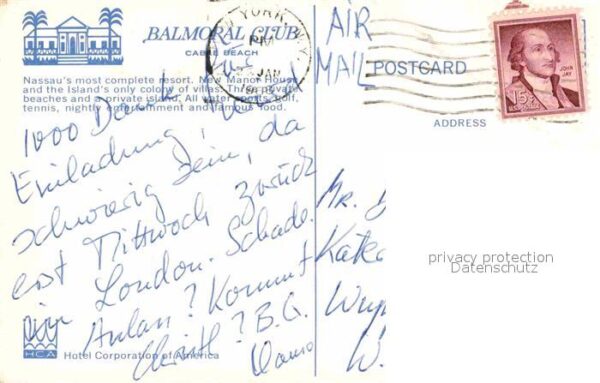 BALMORAL CLUB
CABLE BEACH
Nassau's most complete resort. New Manor House
and the Island's only colony of villas. Three private
beaches and a private island. All water sports, golf,
tennis, nightly entertainment and famous food.
1000 Dank
Einladung!
schwierig sein, da
erst Mittwoch zurück
London. Schade.
Anlan? Kommt
Christl? B.G.
HCA
Hotel Corporation of America
NEW YORK, N.Y.
PM
JAN
AIR
MAIL
POSTCARD
ADDRESS
JOHN
JAY
15¢
Mr.
privacy protection
Datenschutz
W.